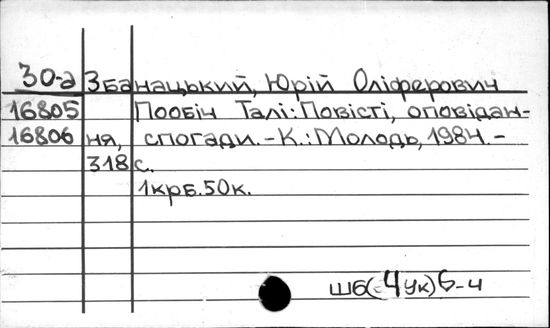 30-д Збанацький, Юрій Оліферович
16805 Пообіч Талі: Повісті, оповідан-
16806 ня, спогади. - К.: Молодь, 1984. -
318 с.
1 крб. 50 к.
Ш6(=4Ук)6-4